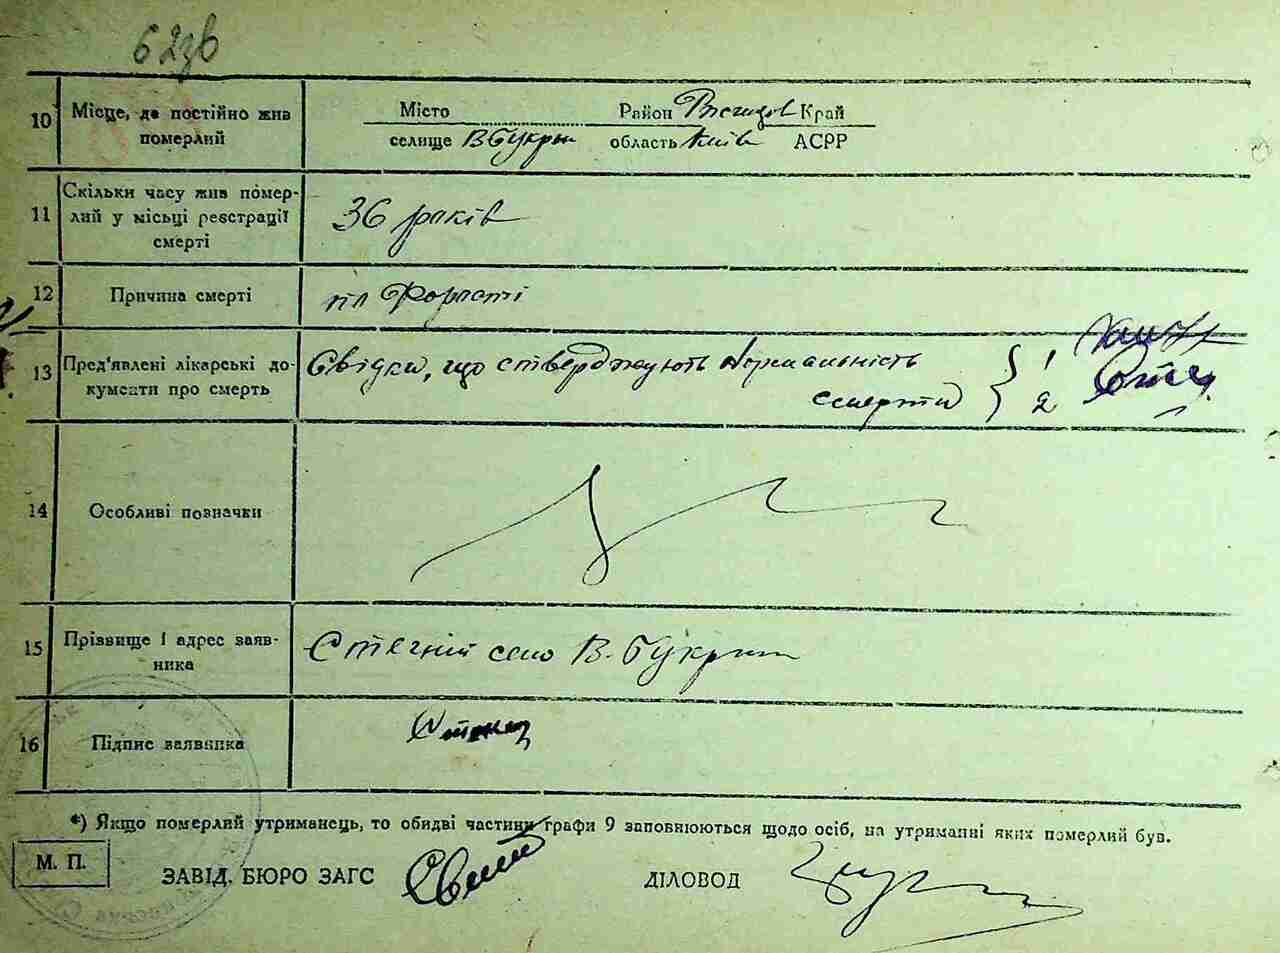 62зв
10 Місце, де постійно жив Місто Район Ржищів Край
померлий селище В Букрин область Київ АСРР
11 Скільки часу жив помер-
лий у місці реєстрації 36 років
смерті
12 Причина смерті
13 Пред'явлені лікарські до- Свідки, що стверджують нормальність } 1
кументи про смерть смерти 2
14 Особливі позначки
15 Прізвище і адрес заяв- Стегній село В. Букрин
ника
16 Підпис заявника
*) Якщо померлий утриманець, то обидві частини графи 9 заповнюються щодо осіб, на утриманні яких померлий був.
М. П.
ЗАВІД. БЮРО ЗАГС ДІЛОВОД